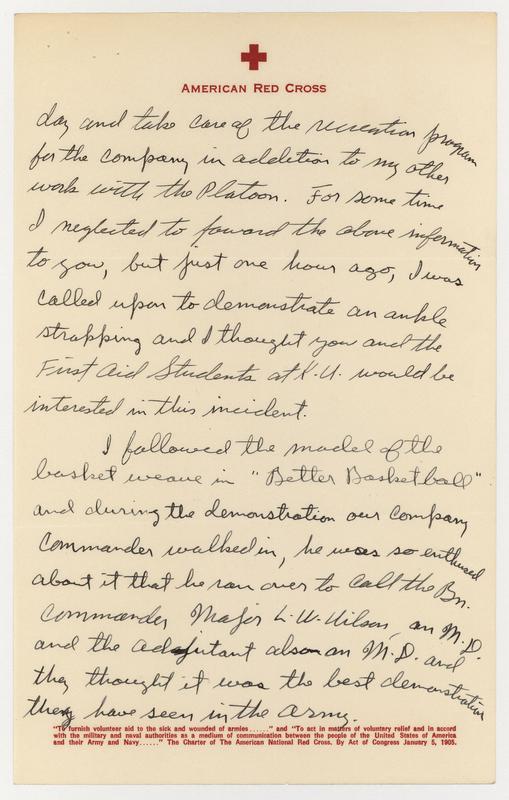 AMERICAN RED CROSS
day and take care of the recreation program
for the company in addition to my other
work with the Platoon. For some time
I neglected to foward the above information
to you, but just one hour ago, I was
called upon to demonstrate an ankle
strapping and I thought you and the
First Aid Students at K.U. would be
interested in this incident.
I followed the model of the
basket weave in "Better Basketball"
and during the demonstration our Company
Commander walked in, he was so enthused
about it that he ran over to call the Bn.
Commander Major L.W. Wilson, an M.D.
and the adjutant also an M.D. and
they thought it was the best demonstration
they have seen in the army.
"To furnish volunteer aid to the sick and wounded of armies......" and "To act in matters of voluntary relief and in accord
with the military and naval authorities as a medium of communication between the people of the United States of America
and their Army and Navy......" The Charter of The American National Red Cross. By Act of Congress January 5, 1905.